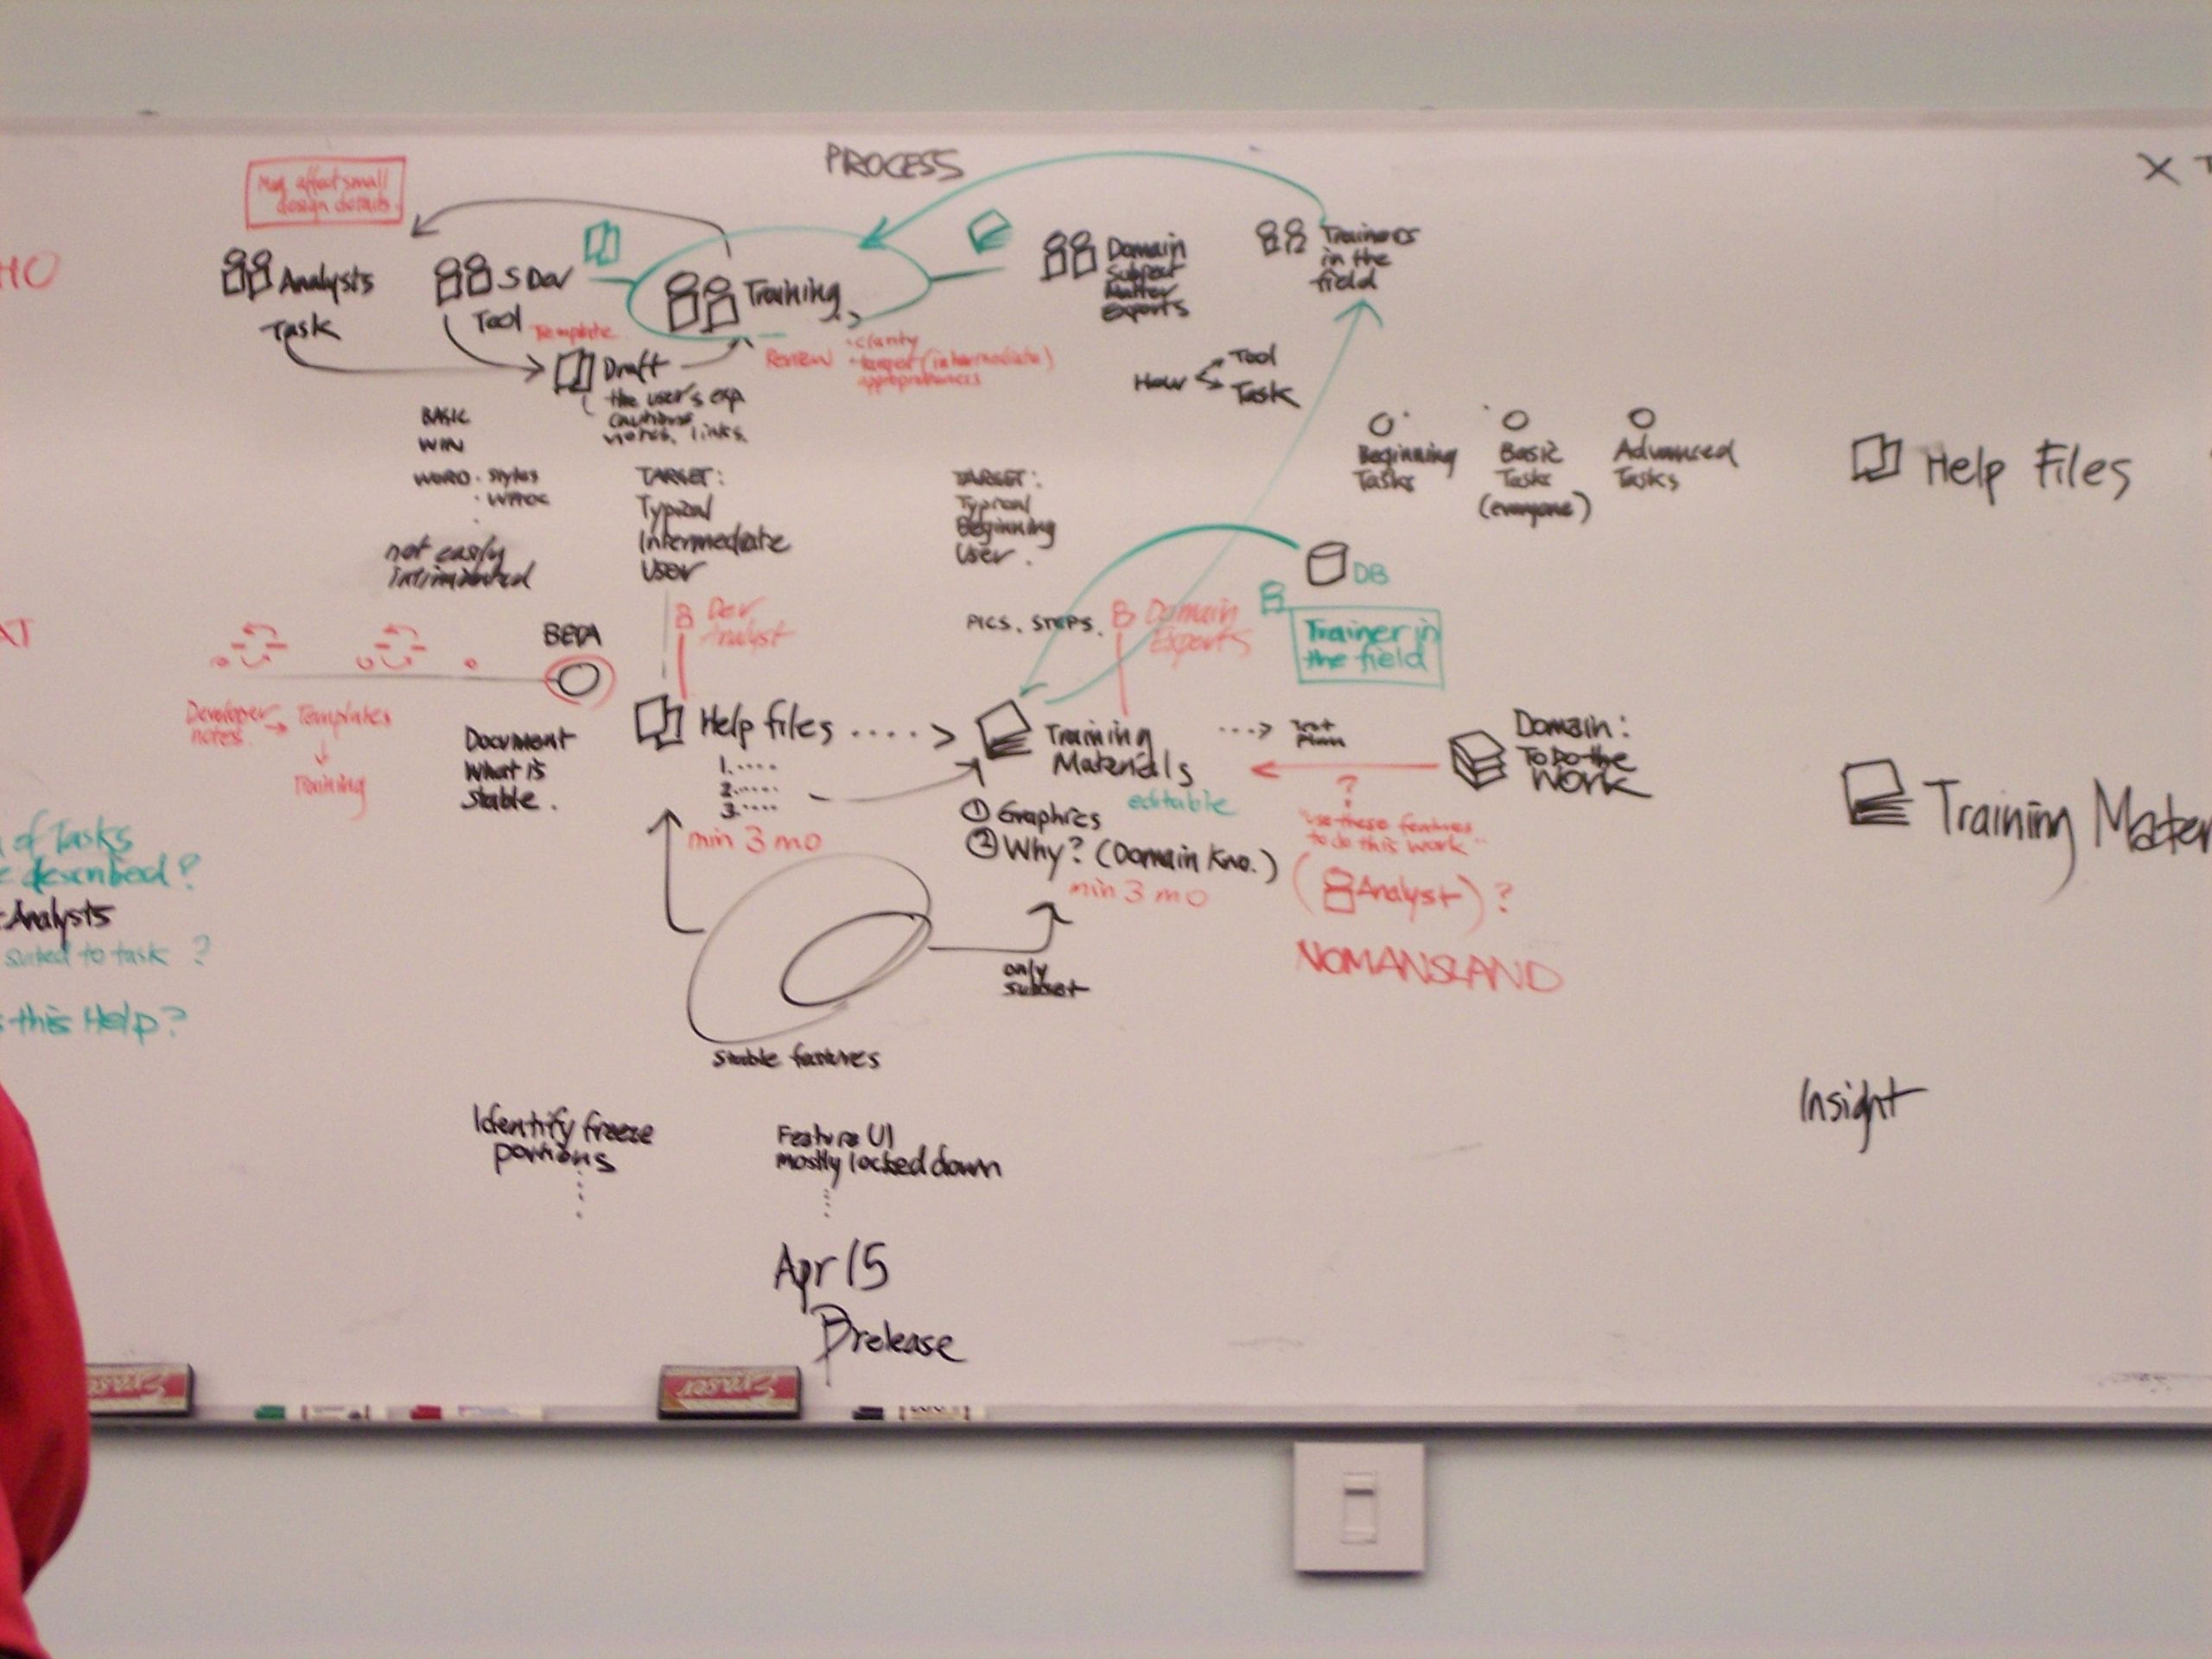 PROCESS
X
May affect small
design details.
HO
Analysts
Task
S Dev
Tool
Template
Training
Domain
Subject
Matter
Experts
Trainers
in the
field
Draft
the user's exp
cautions
notes, links.
Review
• clarity
• target (intermediate)
appropriateness
How
Tool
Task
BASIC
WIN
WORD • styles
•
not easily
TARGET:
Typical
Intermediate
User
TARGET:
Typical
Beginning
User.
Beginning
Tasks
Basic
Tasks
(everyone)
Advanced
Tasks
Help Files
DB
Trainer in
the field
AT
BETA
Dev
Analyst
PICS. STEPS.
Domain
Experts
Developer
notes.
Templates
Training
Document
What is
Stable.
Help files
1.....
2.....
3.....
min 3 mo
Training
Materials
editable
① Graphics
② Why? (Domain Kno.)
min 3 mo
Plan
Domain:
To Do the
Work
?
"use these features
to do this work"
(Analyst)?
NOMANSLAND
Training Mater
of Tasks
described?
Analysts
suited to task ?
this Help?
only
subset
Stable features
Insight
Identify freeze
portions
Feature UI
mostly locked down
Apr 15
release
Eraser
Eraser